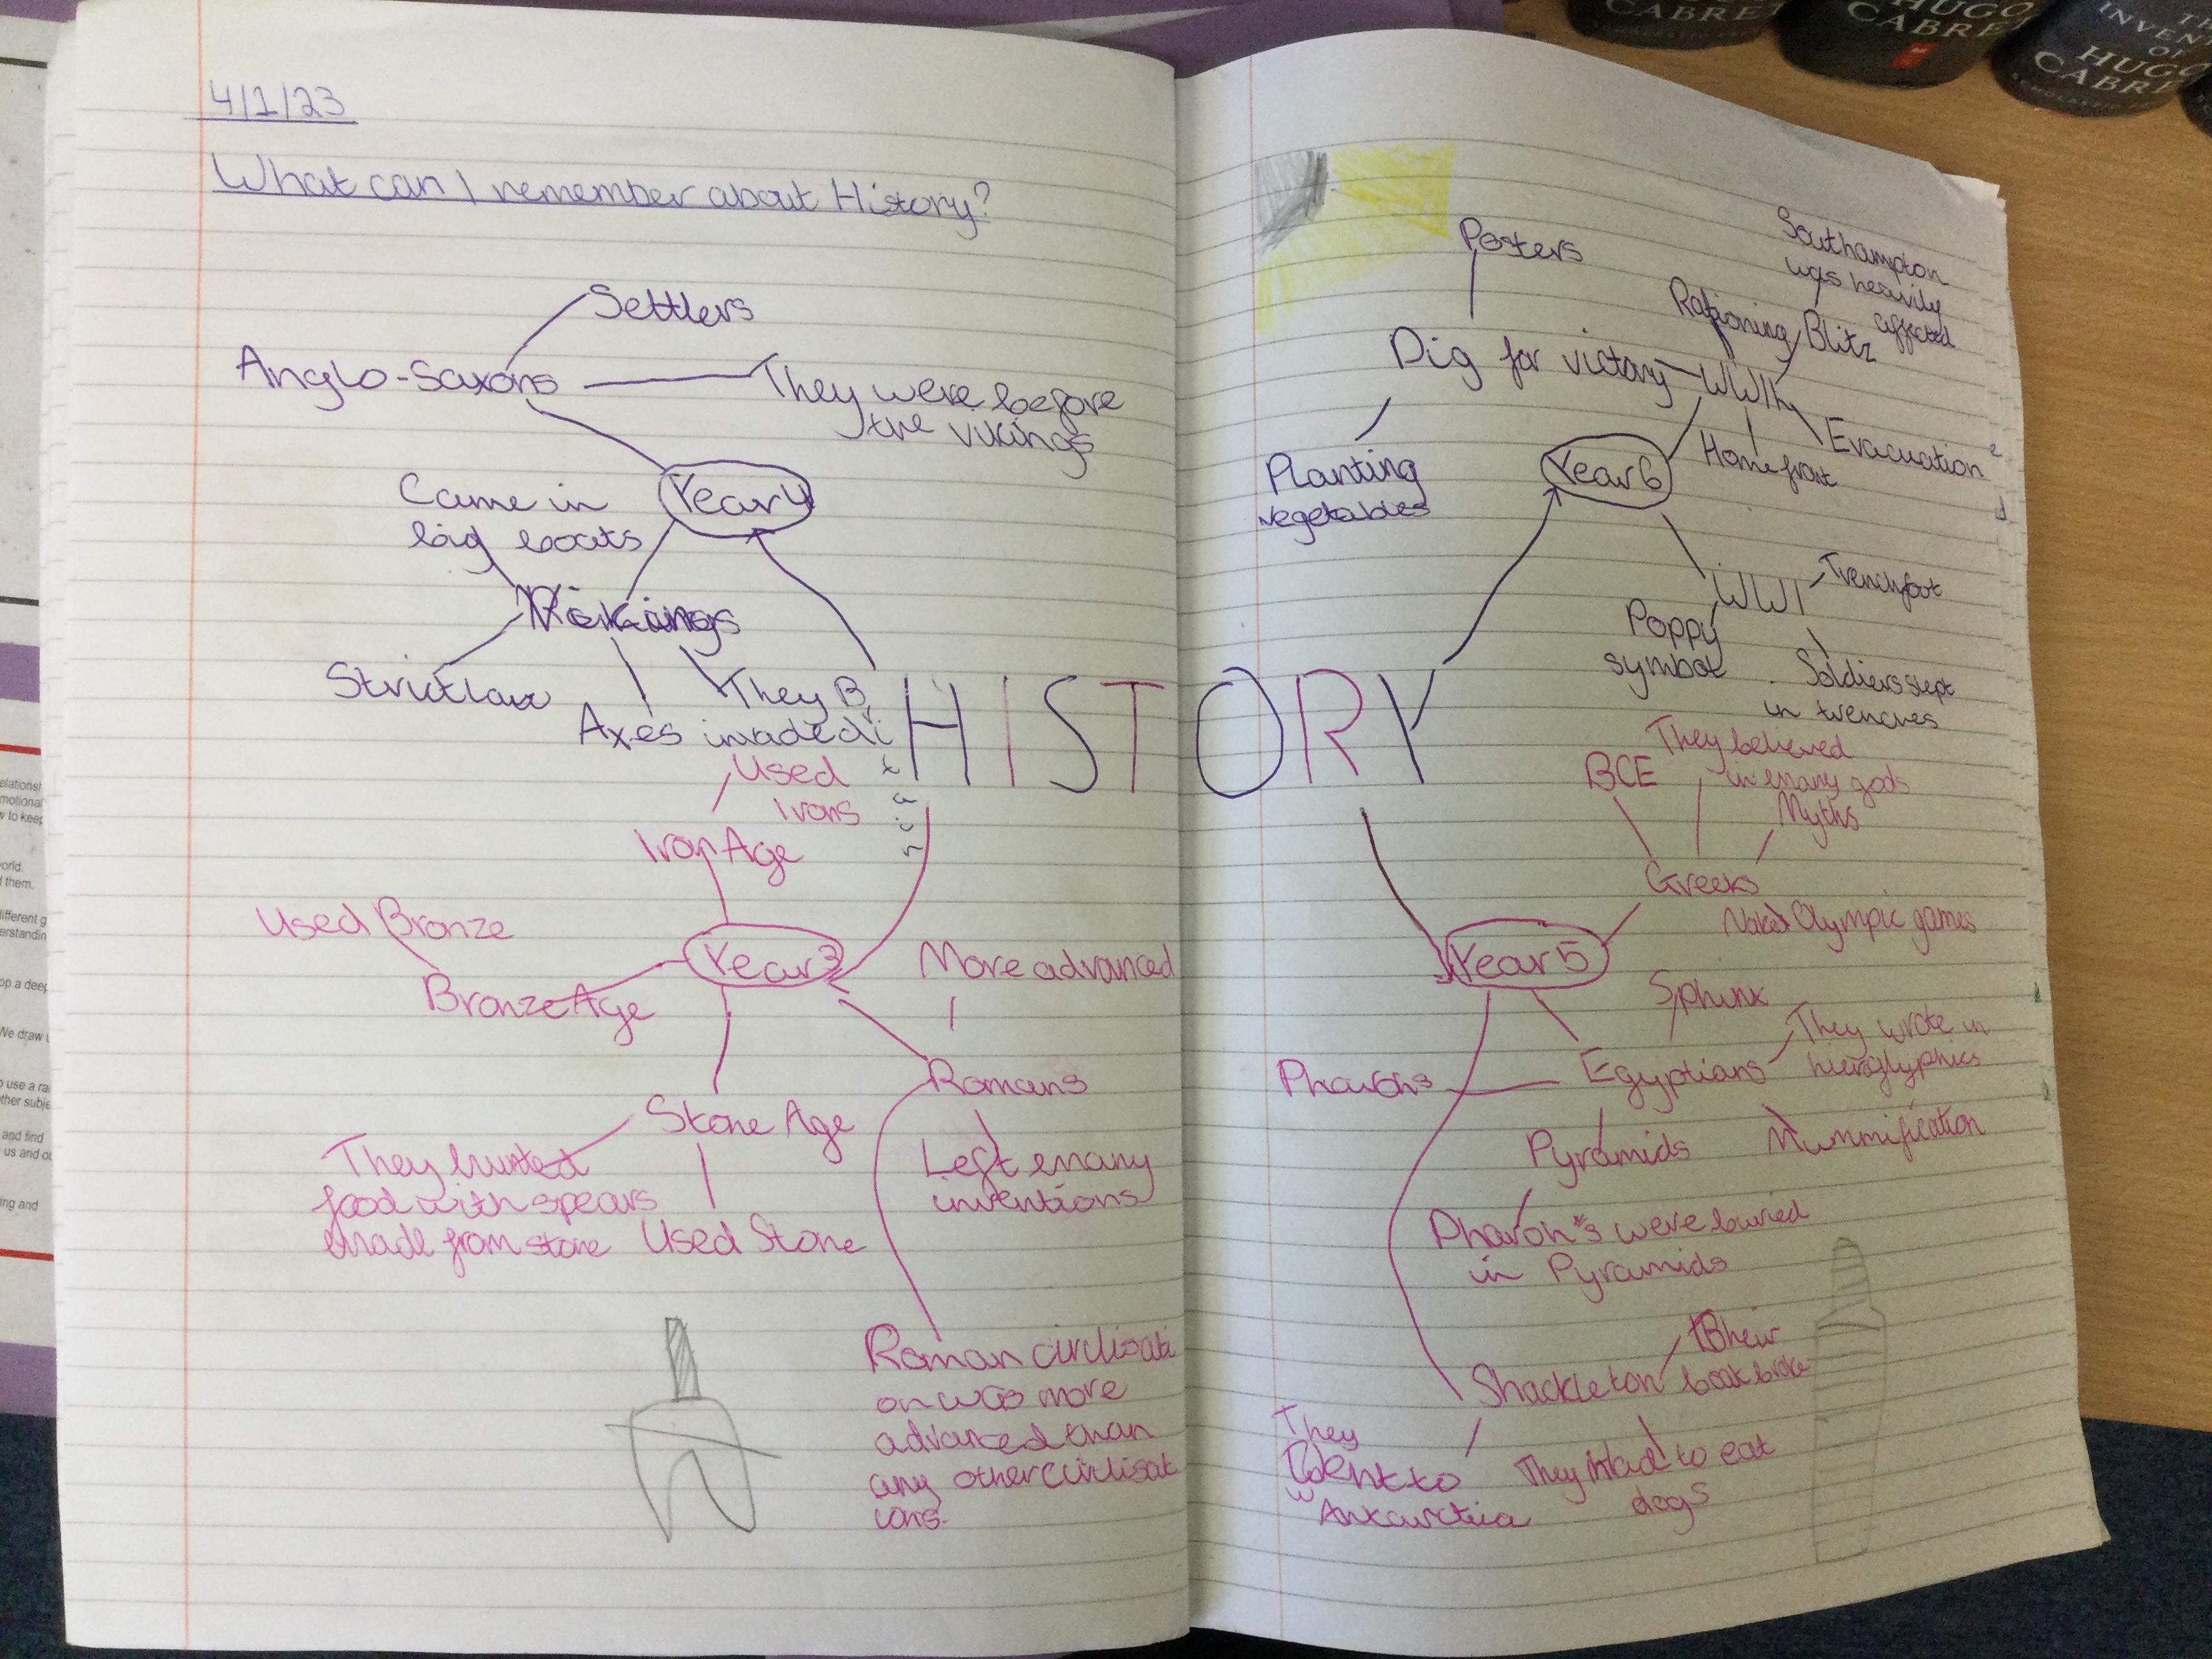 4/1/23
What can I remember about History?
Settlers
Anglo-Saxons
They were before
the vikings
Year 4
Came in
big boats
Vikings
Strict law
Axes
They
invaded
Britain
HISTORY
Used
Irons
Iron Age
Used Bronze
Bronze Age
Year 3
More advanced
Romans
Stone Age
They hunted
food with spears
made from stone
Used Stone
Left many
inventions
Roman civilisati
on was more
advanced than
any other civilisat
ions.
Posters
Southampton
was heavily
affected
Rationing
Blitz
Dig for victory
WWII
Planting
vegetables
Year 6
Home front
Evacuation
WWI
Trenchfoot
Poppy
symbol
Soldiers slept
in trenches
BCE
They believed
in many gods
Myths
Greeks
Naked Olympic games
Year 5
Sphinx
They wrote in
hieroglyphics
Egyptians
Pharohs
Pyramids
Mummification
Pharoh's were buried
in Pyramids
Shackleton
their
boat broke
They
went to
Antarctica
They had to eat
dogs
HUGO
CABRET
HUGO
CABRE
THE
INVEN
OF
HUGO
CABRE
relationsh
motional
w to keep
world.
d them.
different g
erstandin
op a deep
We draw u
o use a ra
ther subje
and find
us and ou
ing and